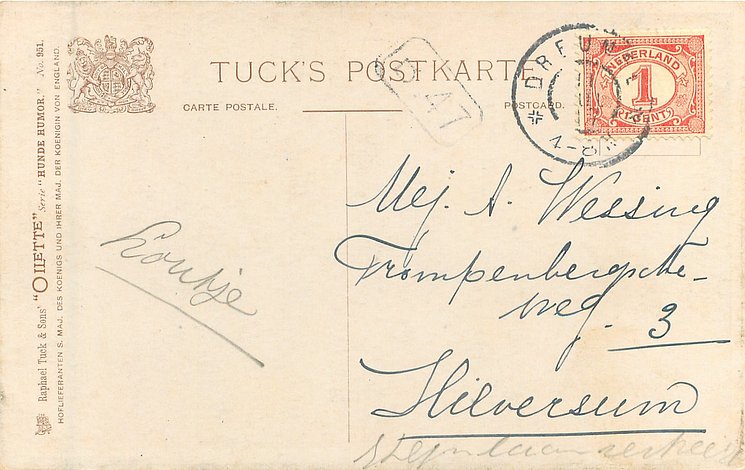 TUCK'S POSTKARTE
CARTE POSTALE.
POSTCARD.
Raphael Tuck & Sons' "OILETTE" Serie "HUNDE HUMOR." No. 951.
HOFLIEFERANTEN S. MAJ. DES KOENIGS UND IHRER MAJ. DER KOENIGIN VON ENGLAND.
NEDERLAND
1
CENT
4-8
Mej. A. Wessing
Trompenbergsche-
weg. 3
Hilversum
Loutje